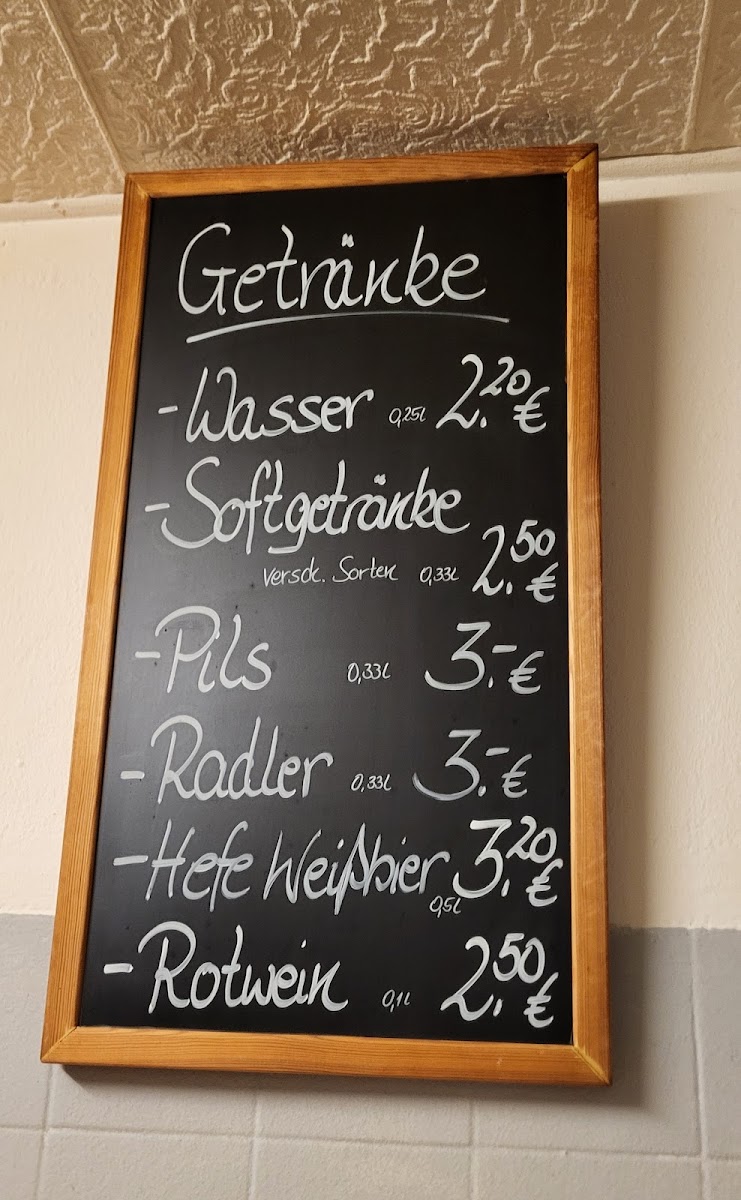 Getränke
- Wasser 0,25l 2.20 €
- Softgetränke
versch. Sorten 0,33l 2.50 €
- Pils 0,33l 3.- €
- Radler 0,33l 3.- €
- Hefe Weißbier 0,5l 3.20 €
- Rotwein 0,1l 2.50 €